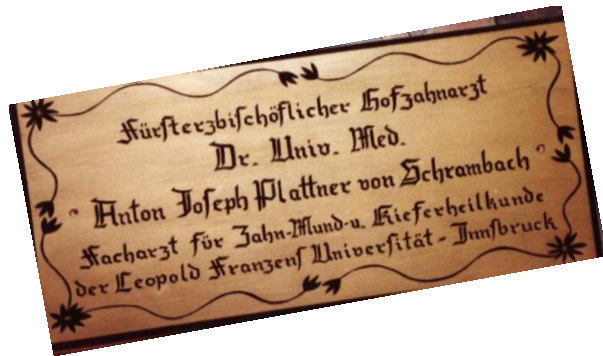 Fürſterzbiſchöflicher Hofzahnarzt
Dr. Univ. Med.
Anton Joſeph Plattner von Schrambach
Facharzt för Zahn-Mund-u. Kieferheilkunde
der Leopold Franzenſ Univerſität - Innſbruck